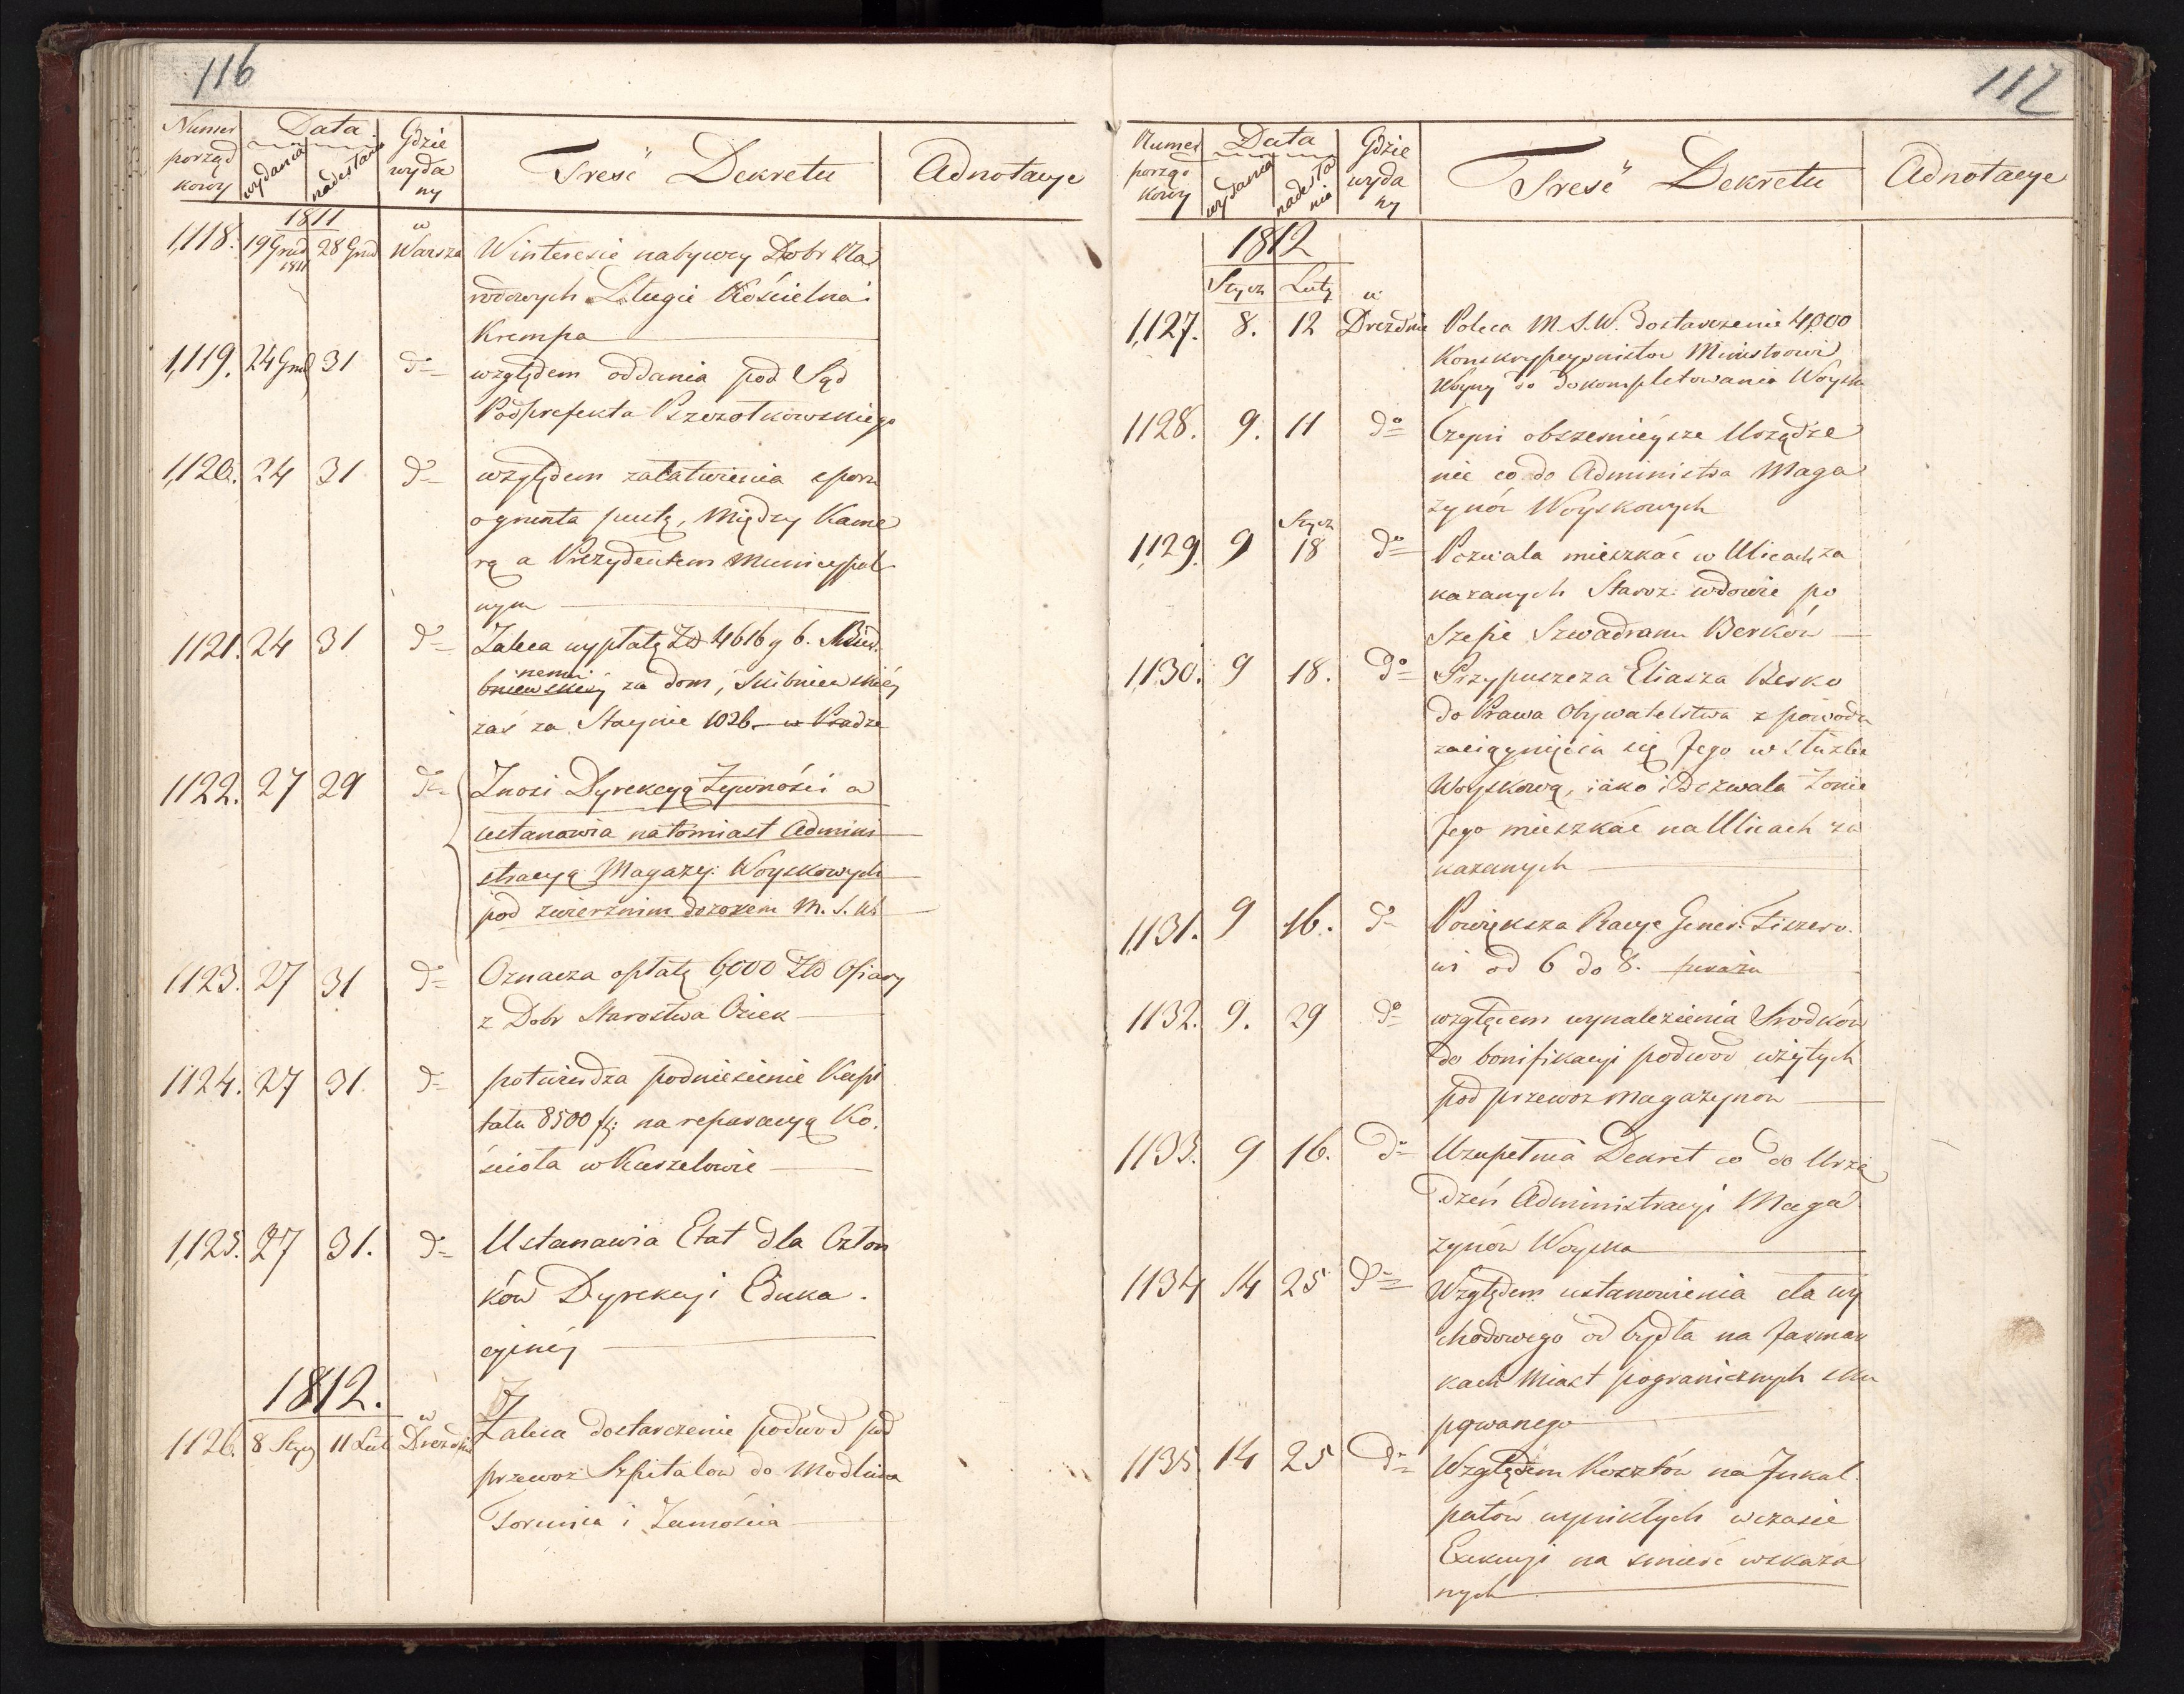 116
Numer porząd kowy Data wydania nadesłania Gdzie wyda ny Treść Dekretu Adnotacye
1811
1,118. 19 Grud 1811 28 Grud w Warsza W interesie nabywcy Dobr Na
rodowych Długie Kościelna i
Krempa
1,119. 24 Grud 31 do względem oddania pod Sąd
Podprefekta Pszczołkowskiego
1,120. 24 31 do względem załatwienia sporu
o grunta puste, Między Kame
rą a Prezydentem Municypal
nym
1121. 24 31 do Zaleca wypłatę Zło 4616 g 6.
bniewskiey za dom, Skibniewskiey
zaś za Staynie 1026 w Pradze
1122. 27 29 do Znosi Dyrekcyą Żywności a
ustanawia natomiast Admini
stracyą Magazy: Woyskowych
pod zwierznim dozorem M. S. W.
1123. 27 31 do Oznacza opłatę 6,000 Zło Ofiary
z Dobr Starostwa Osiek
1124. 27 31. do potwierdza podniesienie Kapi
tału 8500 f: na reparacyą Ko.
ścioła w Kuszelowie
1,125. 27 31. do Ustanawia Etat dla Człon
ków Dyrekcyi Eduka.
cyiney
1812.
1126. 8 Stycz 11 Lut w Dreznie Zaleca dostarczenie podwod pod
przewoz Szpitalow do Modlina
Torunia i Zamościa
117
Numer porząd kowy Data wydania nadesła nia Gdzie wyda ny Treść Dekretu Adnotacye
1812
Stycz Luty
1,127. 8. 12 w Dreznie Poleca M. S. W. dostarczenie 4,000
Konskrypcyonistow Ministrowi
Woyny do dokompletowania Woyska
1128. 9. 11 do Czyni obszernieysze Urządze
nie co do Administra Maga
zynów Woyskowych
Stycz
1129. 9 18 do Pozwala mieszkać w Ulicach za
kazanych Staroz: wdowie po
Szefie Szwadranu Berków
1,130. 9 18. do Przypuszcza Eliasza Berko
do Prawa Obywatelstwa z powodu
zaciągnięcia się Jego w Służbę
Woyskową, iako i Dozwala Żonie
Jego mieszkać na Ulicach za
kazanych
1,131. 9 16. do Powiększa Racye Gener: Fiszero.
wi od 6 do 8.
1132. 9. 29 do względem wynalezienia Srodków
do bonifikacyi podwod użytych
pod przewoz Magazynów
1133. 9 16. do Uzupełnia Dekret co do Urzą
dzeń Administracyi Maga
zynów Woyska
1134 14 25 do Względem ustanowienia cła wy
chodowego od bydła na Jarmar
kach Miast pogranicznych sku
pywanego
1135 14 25 do Względem Kosztów na Inkul
patów wynikłych w czasie
Exekucyi na smierć wskaza
nych